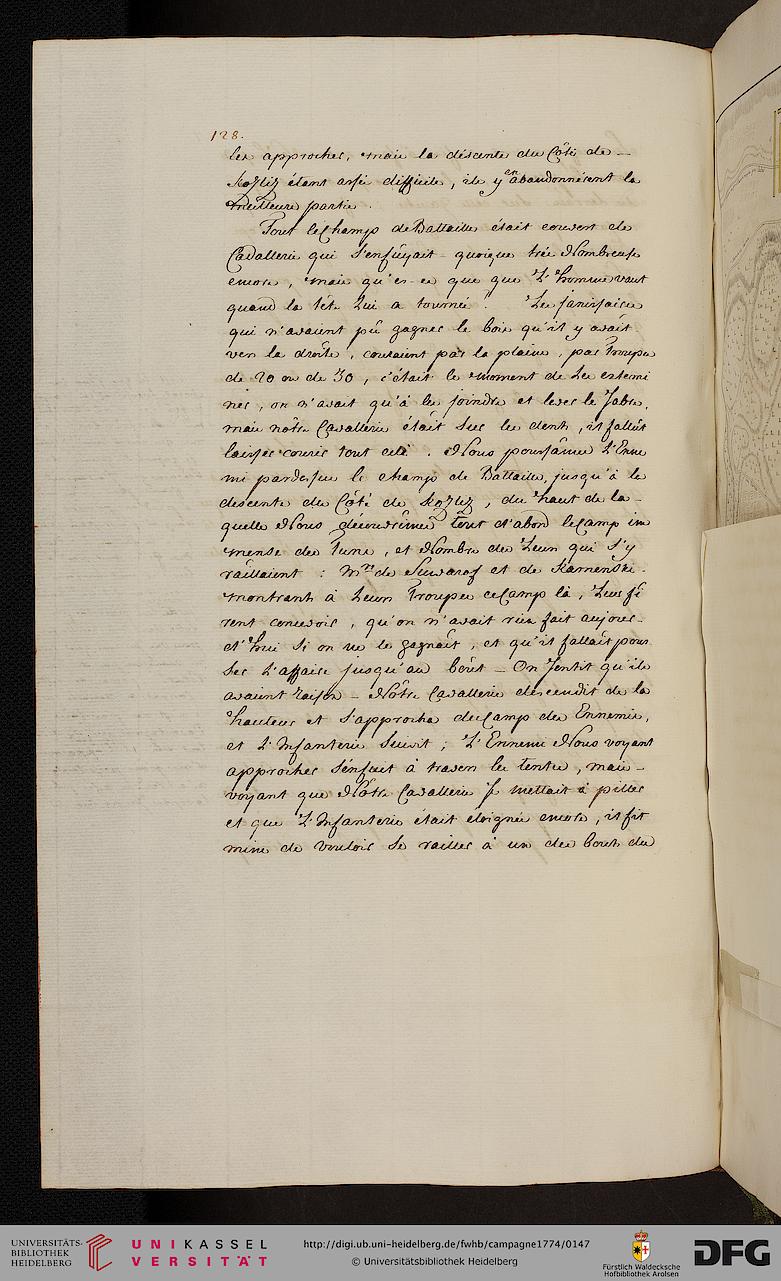 128.
les approcher, mais la désçente du Côté de –
Kozliz étant assés difficile, ils y en abandonnérent la
meilleure partie.
Tout le Champ de Battaille était couvert de
Cavallerie qui s'enfûyait – quoique trés Nombreuse
encore, mais qu'es-ce que que L'homme vaut
quand la tête Lui a tourné. Les Janissaires
qui n'avaient pû gagner le bois qu'il y avait
vers la droite, couraient par la plaine, par Troupes
de 20 ou de 30, c'était le moment de Les extermi
ner, on n'avait qu'à les joindre et lever le Sabre,
mais nôtre Cavallerie était sur les dents, il fallût
laisser courir tout celà. Nous poursûimes L'Enne
mi pardessus le champ de Battaille, jusqu'à la
descente du Côté de Kozliz, du haut de la-
quelle Nous découvrîmes tout d'abord le Camp im
mense des Turcs, et Nombre des Leurs qui s'y
raillaient : Mrs de Suwarof et de Kamenski –
montrants à Leurs Troupes ce Camp là, Leur fi
rent concevoir, qu'on n'avait rien fait aujour-
d'hui si on ne le gagnait, et qu'il fallait pous
ser L'affaire jusqu'au bout – On Sentit qu'ils
avaient raison – Nôtre Cavallerie déscendit de la
hauteur et s'approcha du Camp des Ennemis,
et L'Infanterie Suivit ; L'Ennemi Nous voyant
approcher s'enfuit à travers les tentes, mais –
voyant que Nôtre Cavallerie se mettait à piller
et que L'Infanterie était eloignée encore, il fit
mine de vouloir se railler à un des bouts du
UNIVERSITÄTS-
BIBLIOTHEK
HEIDELBERG
UNIKASSEL
VERSITÄT
http://digi.ub.uni-heidelberg.de/fwhb/campagne1774/0147
© Universitätsbibliothek Heidelberg
Fürstlich Waldecksche
Hofbibliothek Arolsen
DFG